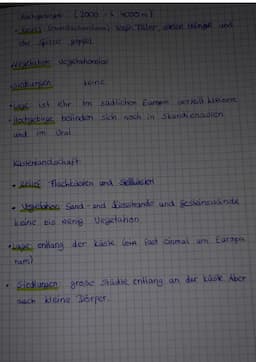 Hochgebirge (2000 - 4000m)
• Relief: Täler, und
der Spitze gipfel.
Vegetation: vegetationslos
Siedlungen: keine
• Lage ist eher im südlichen Europa
• Hochgebirge befinden sich noch in Skandinavien
und im Ural
Küstenlandschaft:
• Relief: Flachküsten und Steilküsten
• Vegetation: Sand- und und Gesteinswände
keine bis wenig Vegetation
• Lage: entlang der Küste (ein fast einmal um Europa
rum)
• Siedlungen: große Städte entlang an der Küste Aber
auch kleine Dörper.